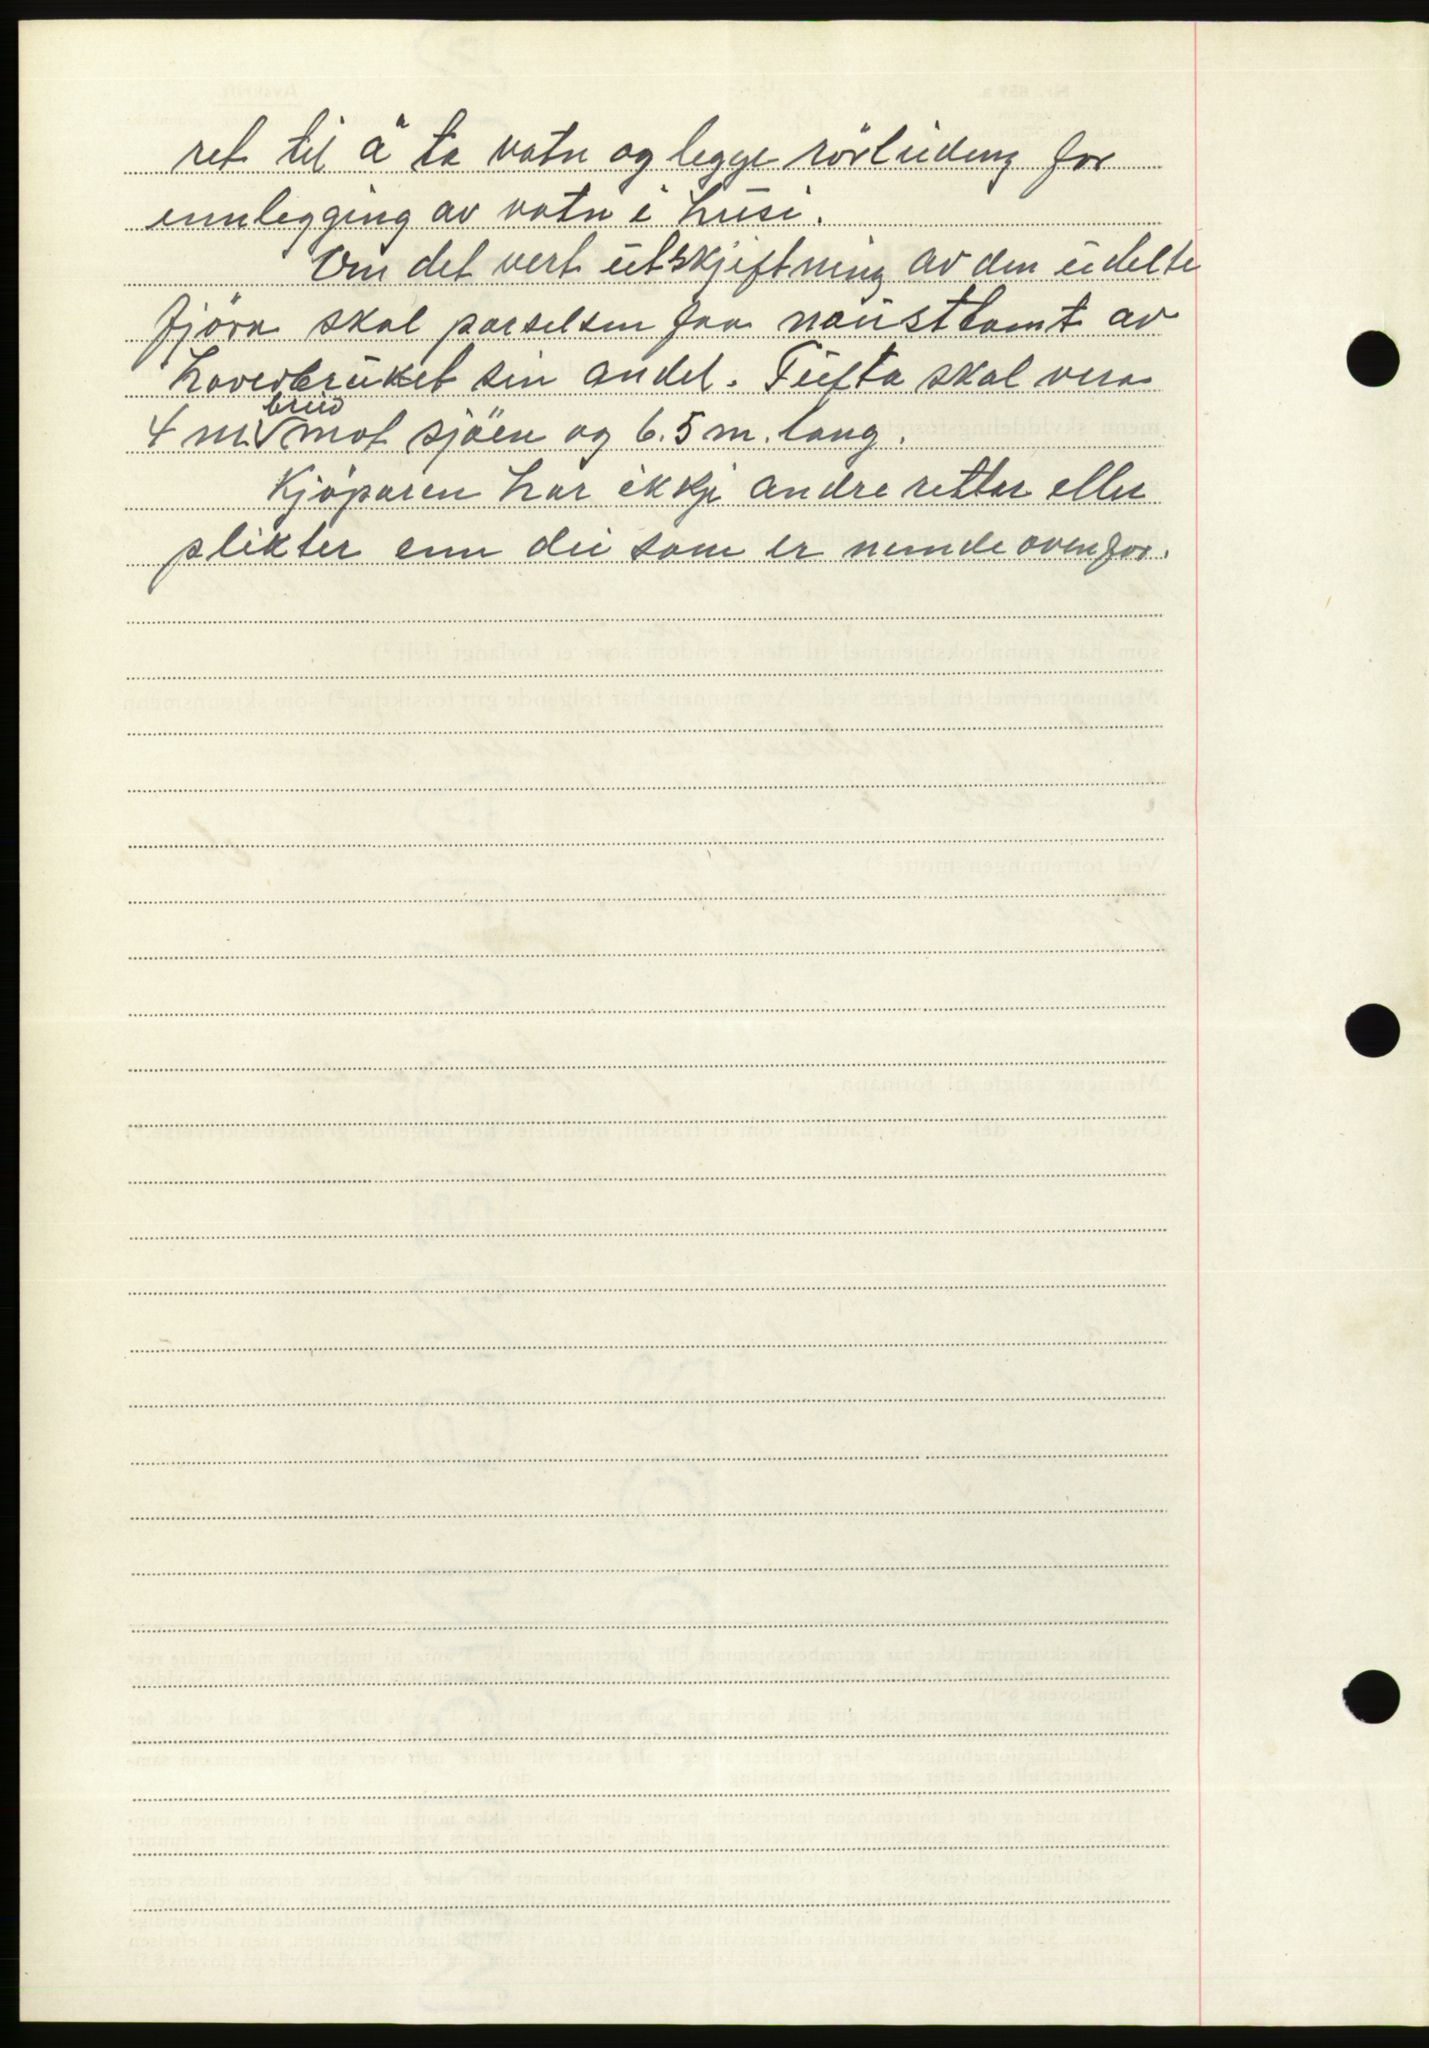 ret til å ta vatn og legge rörleideng for
ennlegging av vatn i husi.
Om det vert utskjiftning av den udelte
fjöra skal parselsen faa nausttomt av
hovedbruket sin andel. Tufta skal vera
breid
4 m. mot sjöen og 6.5 m. lang.
Kjöparen har ikkje andre rettar eller
plikter enn dei som er nemde ovenfor.